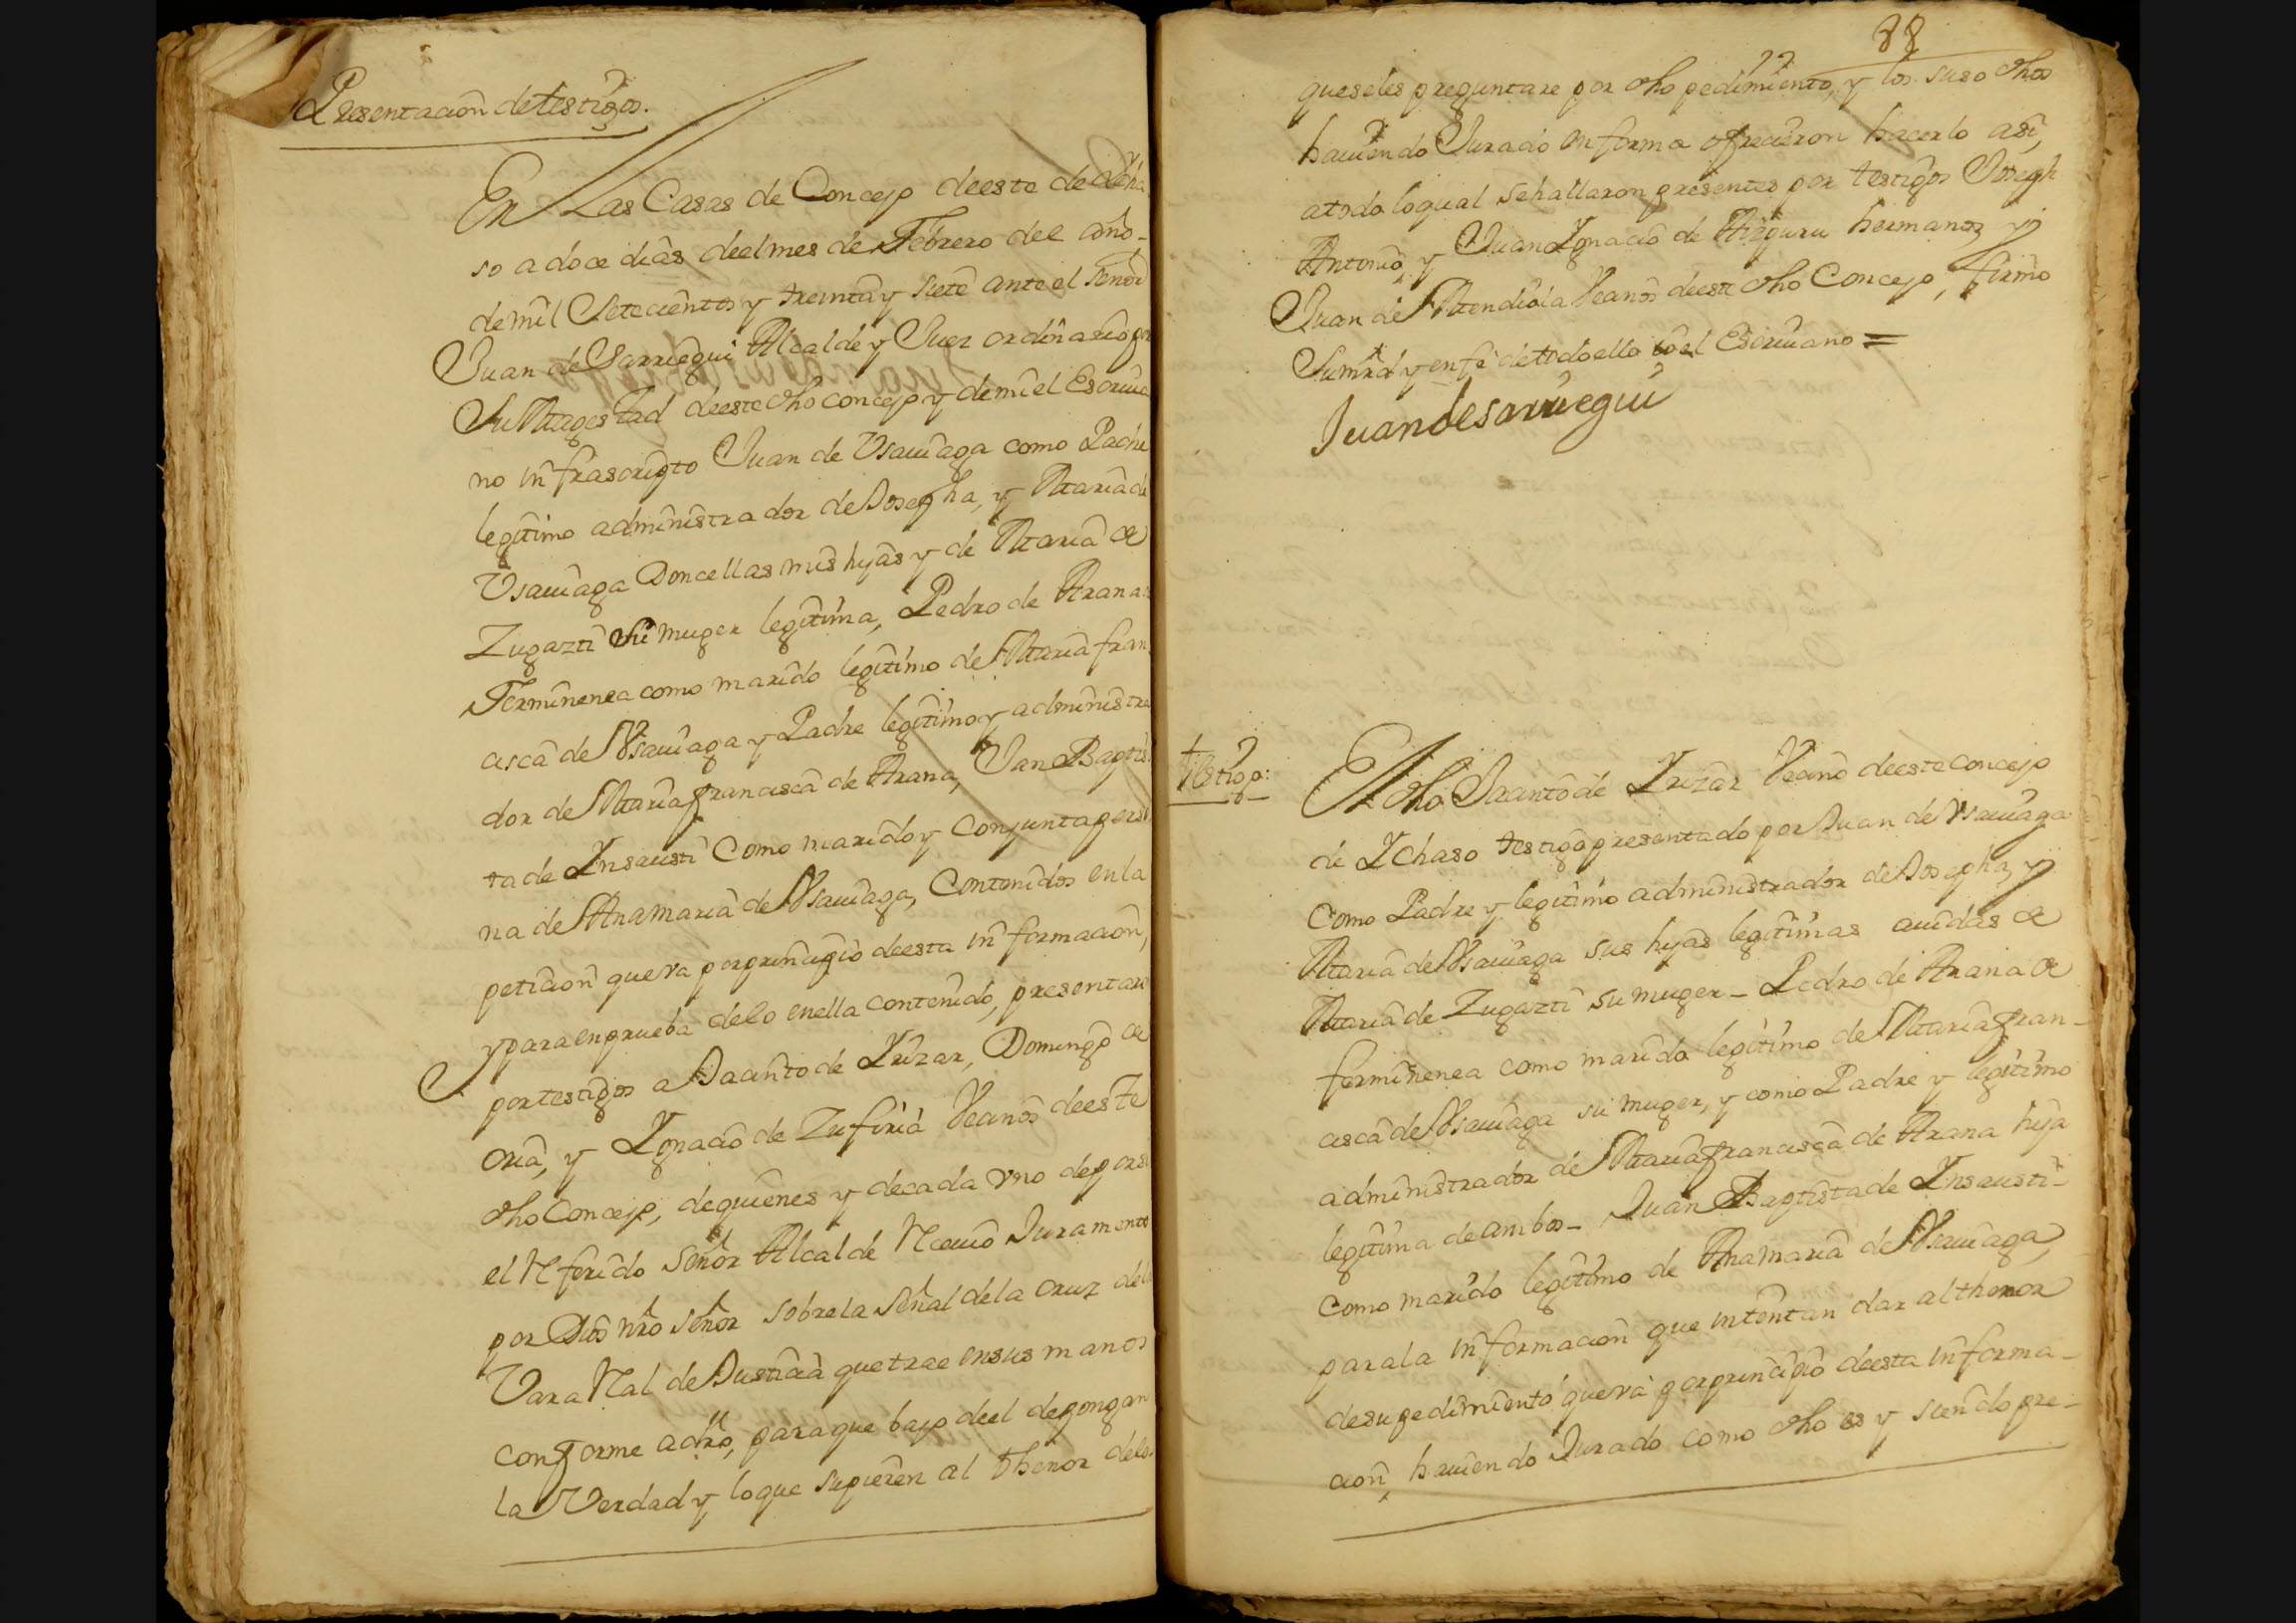 Presentacion de testigos.
En Las Casas de Concejo de este de Ycha
so a doce dias de el mes de Febrero de el año
de mil Setecientos y treinta y siete ante el señor
Juan de Sarriegui Alcalde y Juez ordinario por
Su Magestad de este dho concejo y de mi el Escriua
no infrascripto Juan de Vsauiaga como Padre
legitimo administrador de Josepha, y Maria de
Vsauiaga Doncellas mis hijas y de Maria de
Zugazti su muger legitima, Pedro de Arana
Ferminenea como marido legitimo de Maria fran
cisca de Vsauiaga y Padre legitimo y administra
dor de Maria francisca de Arana, Juan Baptis
ta de Insausti Como marido y Conjunta perso
na de Ana Maria de Vsauiaga, Contenidos en la
peticion que va por principio de esta informacion,
y para en prueba de lo en ella contenido, presentaro
por testigos a Jacinto de Yrizar, Domingo de
Oria, y Ygnacio de Zufiria Vecinos de este
dho Concejo, de quienes y de cada vno de por si
el Referido Señor Alcalde Receuio Juramento
por Dios nro señor sobre la señal de la Cruz de la
Vara Real de Justicia que trae en sus manos
conforme a dro, para que bajo de el depongan
la Verdad y lo que supieren al thenor de lo
88
que seles preguntare por dho pedimiento, y los suso dhos
hauiendo Jurado en forma ofrecieron hacerlo asi,
a todo lo qual se hallaron presentes por testigos Joseph
Antonio, y Juan Ygnacio de Aseguru hermanos, y
Juan de Mendiola Vecinos de este dho Concejo, firmo
Su mrd y en fe de todo ello yo el Escriuano =
Juan de Sarriegui
testigo:
El dho Jacinto de Yrizar Vecino de este concejo
de Ychaso testigo presentado por Juan de Vsauiaga
Como Padre y legitimo administrador de Josepha, y
Maria de Vsauiaga sus hijas legitimas auidas de
Maria de Zugazti su muger - Pedro de Arana de
ferminenea como marido legitimo de Maria fran-
cisca de Vsauiaga su muger, y como Padre y legitimo
administrador de Maria francisca de Arana hija
legitima de ambos - Juan Baptista de Insausti -
Como marido legitimo de Ana Maria de Vsauiaga,
para la informacion que intentan dar al thenor
de su pedimiento que va por principio de esta informa-
cion, hauiendo Jurado como dho es y siendo pre-